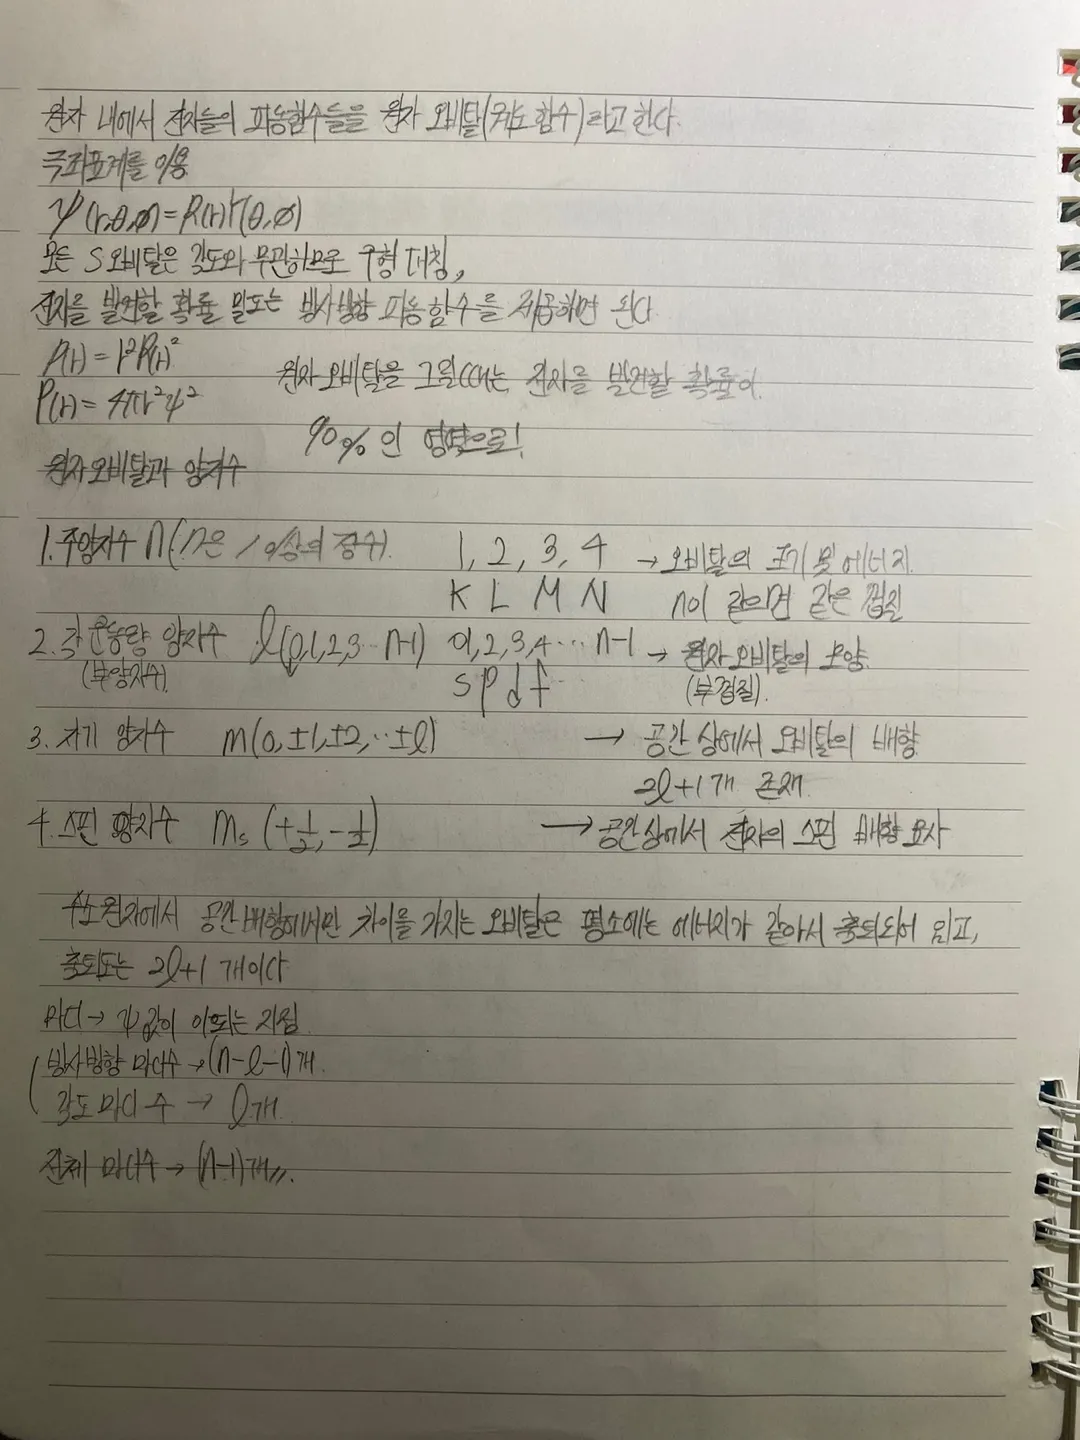 원자 내에서 전자들의 파동함수들을 원자 오비탈(궤도함수)라고 한다.
극좌표계를 이용
ψ(r,θ,ø)=R(r)Y(θ,ø)
모든 S 오비탈은 각도와 무관하므로 구형 대칭,
전자를 발견할 확률 밀도는 방사방향 파동함수를 제곱하면 된다
P(r) = r²R(r)²
원자 오비탈을 그릴때는 전자를 발견할 확률이
P(r) = 4πr²ψ²
90%인 영역으로!
원자오비탈과 양자수
1. 주양자수 n(n은 1이상의 정수). 1, 2, 3, 4 → 오비탈의 크기 및 에너지.
K L M N n이 같으면 같은 껍질
2. 각운동량 양자수 l(0,1,2,3…n-1) 0,1,2,3,4…n-1 → 원자 오비탈의 모양.
(부양자수) s p d f (부껍질).
3. 자기 양자수 m(0,±1,±2,…±l) → 공간 상에서 오비탈의 배향
2l+1개 존재.
4. 스핀 양자수 ms (+1/2, -1/2) → 공간상에서 전자의 스핀 배향 묘사
수소원자에서 공간 배향에서만 차이를 가지는 오비탈은 평소에는 에너지가 같아서 축퇴되어 있고,
축퇴도는 2l+1 개이다
마디 → ψ값이 0이되는 지점.
방사방향 마디수 → (n-l-1)개.
각도 마디 수 → l개.
전체 마디수 → (n-1)개〃.